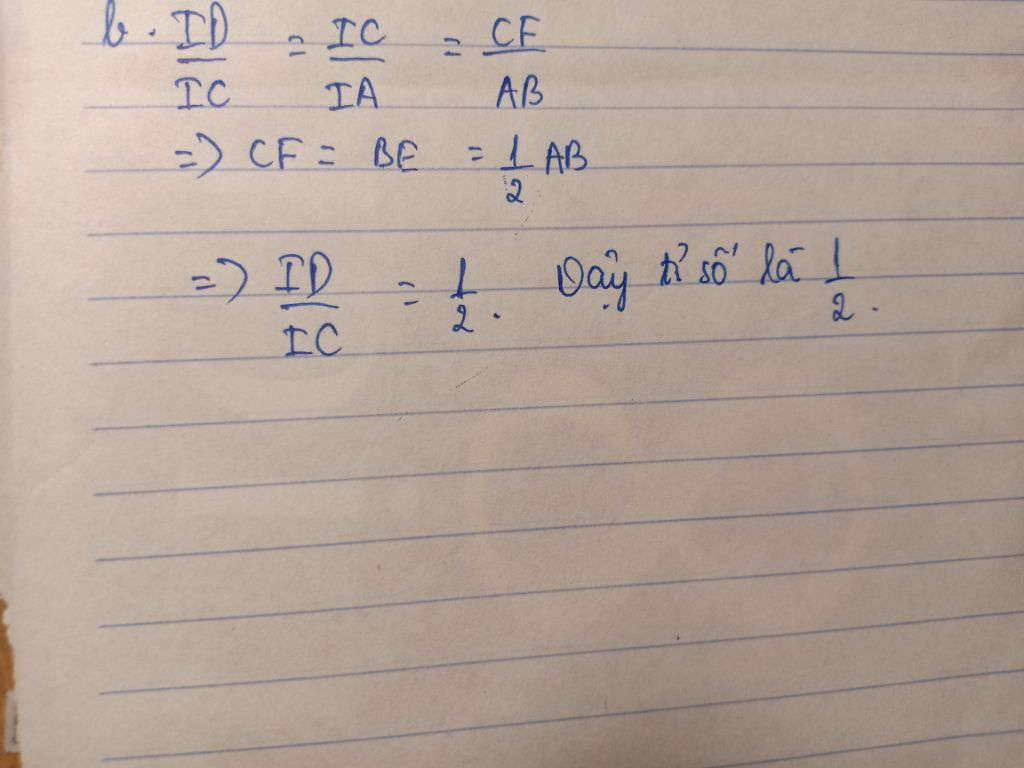 b. ID/IC = IC/IA = CF/AB
=> CF = BE = 1/2 AB
=> ID/IC = 1/2. Vậy tỉ số là 1/2.